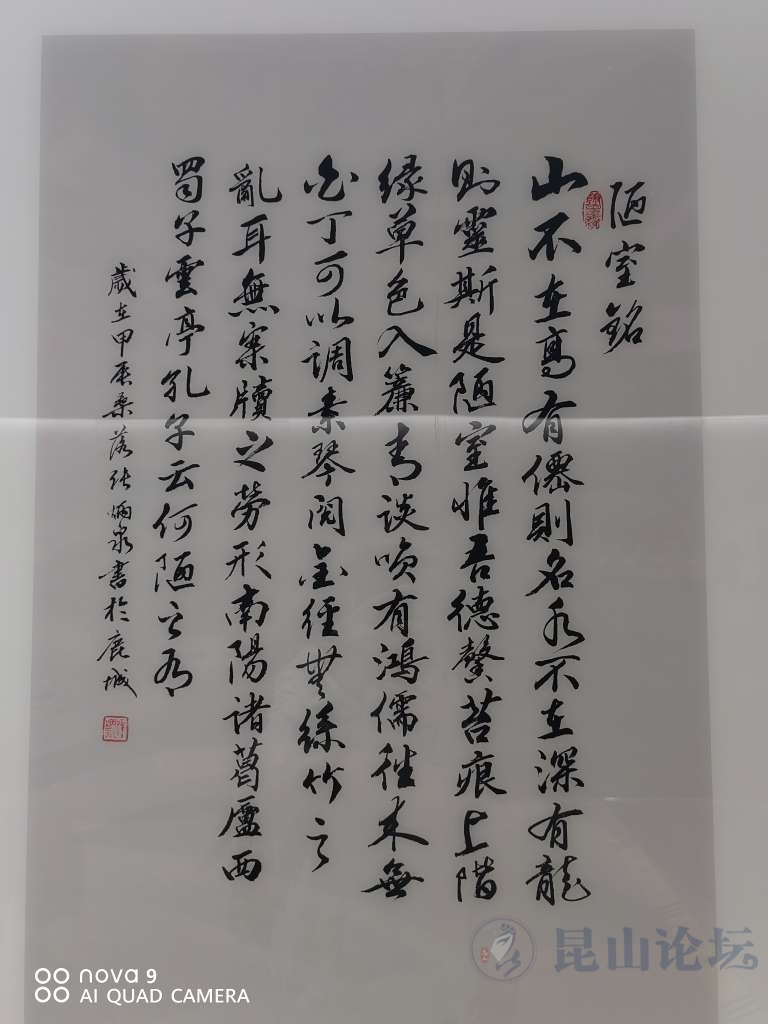 陋室銘
山不在高有僊則名水不在深有龍
則靈斯是陋室惟吾德馨苔痕上階
緑草色入簾青談咲有鴻儒往来無
白丁可以調素琴閲金經無絲竹之
亂耳無案牘之勞形南陽諸葛廬西
蜀子雲亭孔子云何陋之有
歲在甲辰桑落張炳泉書於鹿城
昆山论坛
nova 9
AI QUAD CAMERA